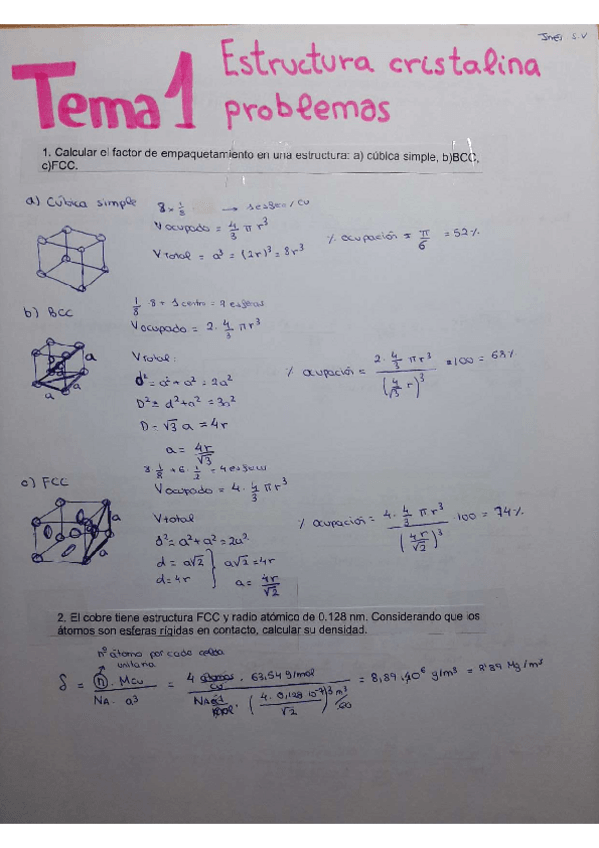 Inés S.V
Tema 1 Estructura cristalina
problemas
1. Calcular el factor de empaquetamiento en una estructura: a) cúbica simple, b)BCC,
c)FCC.
a) Cúbica simple 8 · 1/8 → 1 esfera/cu
V ocupado = 4/3 π r³
V total = a³ = (2r)³ = 8r³
% ocupación = π/6 = 52%
b) BCC
1/8 · 8 + 1 centro = 2 esferas
V ocupado = 2 · 4/3 π r³
V total:
d² = a² + a² = 2a²
D² = d² + a² = 3a²
D = √3 a = 4r
a = 4r/√3
% ocupación = 2 · 4/3 π r³ / (4/√3 r)³ · 100 = 68%
a
a
a
c) FCC
8 · 1/8 + 6 · 1/2 = 4 esferas
V ocupado = 4 · 4/3 π r³
V total
d² = a² + a² = 2a²
d = a√2
d = 4r
a√2 = 4r
a = 4r/√2
% ocupación = 4 · 4/3 π r³ / (4r/√2)³ · 100 = 74%
a
a
2. El cobre tiene estructura FCC y radio atómico de 0,128 nm. Considerando que los
átomos son esferas rígidas en contacto, calcular su densidad.
nº átomo por cada celda
unitaria
δ = n · Mcu / NA · a³ = 4 átomos/cu · 63,54 g/mol / NA · (4 · 0,128 10⁻⁹/√2)³ m³/cu = 8,89 · 10⁶ g/m³ = 8'89 Mg/m³